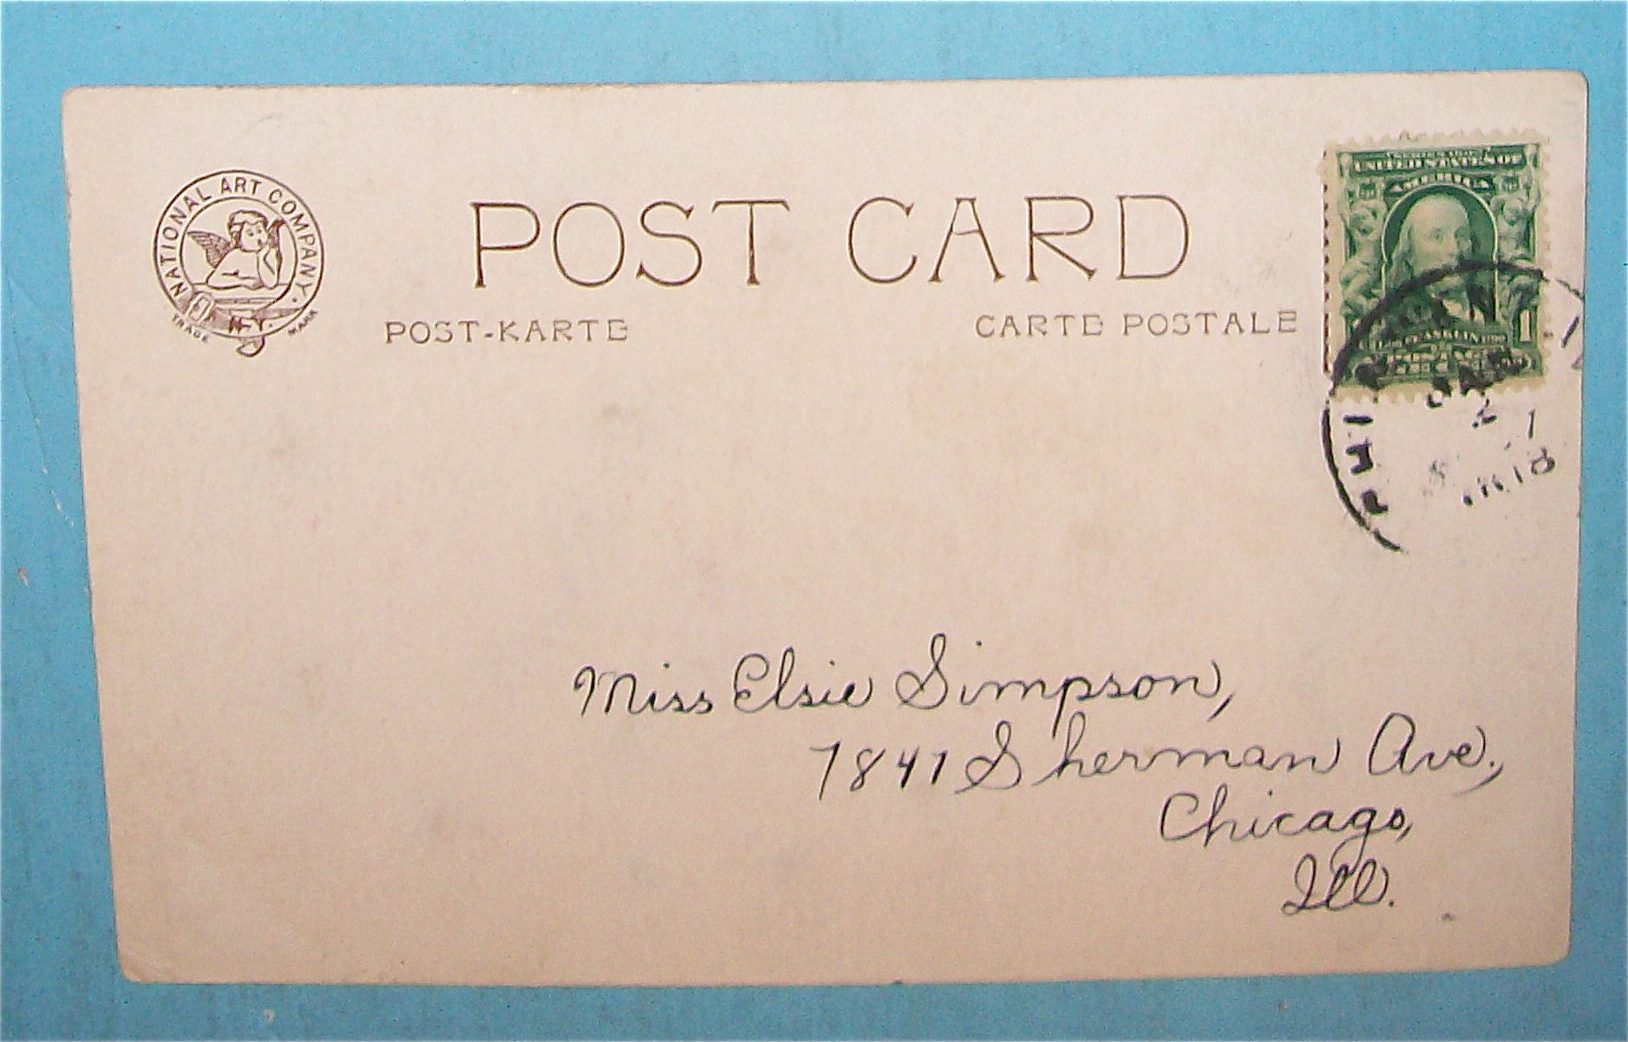 NATIONAL ART COMPANY.
N.Y.
TRADE MARK
POST CARD
POST-KARTE
CARTE POSTALE
SERIES 1902
UNITED STATES OF
AMERICA
1
POSTAGE
JAN
2
Miss Elsie Simpson,
7841 Sherman Ave.,
Chicago,
Ill.